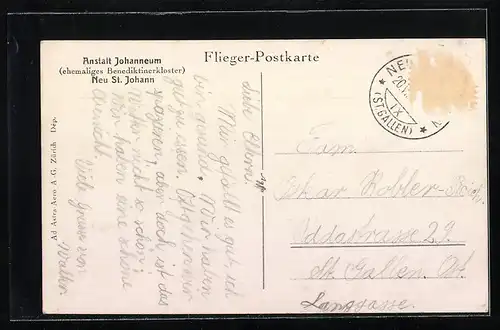 Anstalt Johanneum
(ehemaliges Benediktinerkloster)
Neu St. Johann
Flieger-Postkarte
NEU
20.
IX
(ST. GALLEN)
Ad Astra Aero A.-G. Zürich Dép.
Liebe Eltern!
Mir gefällt es gut. Ich
bin gesund. Wir haben
gut gegessen.
spazieren, aber noch ist das
Wetter nicht so schön.
Wir haben eine schöne
Aussicht.
Viele Grüsse von
Walter
Fam.
Oskar Kobler-
Iddastrasse 29.
St. Gallen. Ost.
Langgasse.